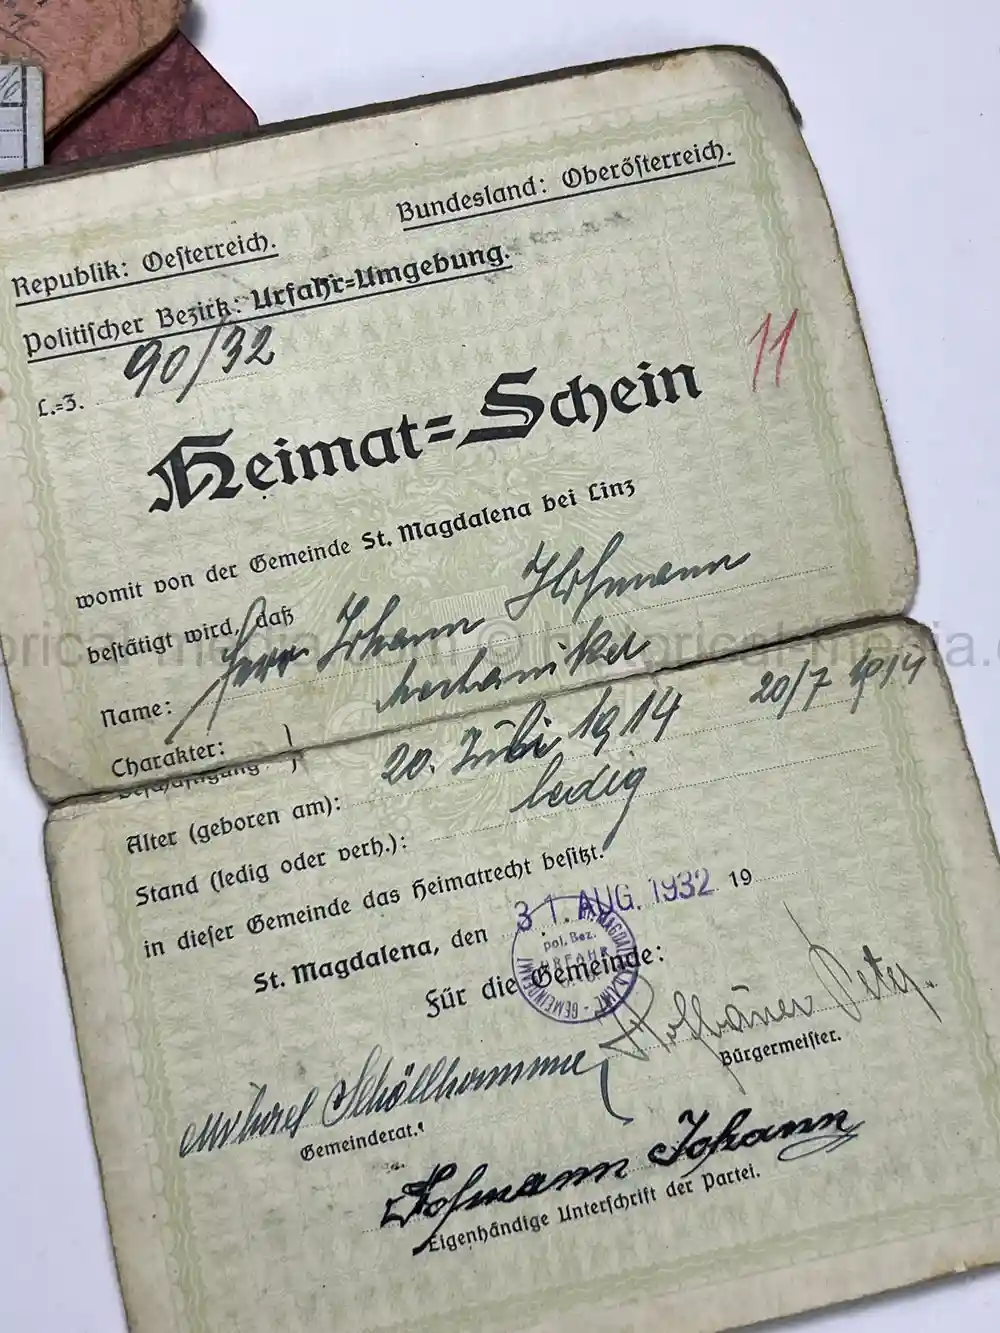 Republik: Oesterreich.
Bundesland: Oberösterreich.
Politischer Bezirk: Urfahr=Umgebung.
L.=Z. 90/32
11
Heimat=Schein
womit von der Gemeinde St. Magdalena bei Linz
bestätigt wird, daß
Name: Herr Johann Hofmann
Charakter: Mechaniker
Beschäftigung:
Alter (geboren am): 20. Juli 1914 20/7 1914
Stand (ledig oder verh.): ledig
in dieser Gemeinde das Heimatrecht besitzt.
St. Magdalena, den 31. AUG. 1932 19
pol. Bez.
URFAHR
Für die Gemeinde:
Bürgermeister.
Gemeinderat.
Hofmann Johann
Eigenhändige Unterschrift der Partei.
historical-media.com © historical-media.com